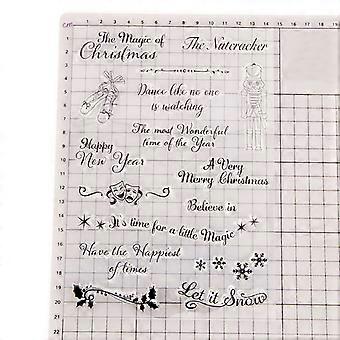 cm
The Magic of
Christmas
The Nutcracker
Dance like no one
is watching
The most Wonderful
time of the Year
Happy
New Year
A Very
Merry Christmas
Believe in
It's time for a little Magic
Have the Happiest
of times
Let it Snow
1
2
3
4
5
6
7
8
9
10
11
12
13
14
15
16
17
18
19
20
21
22